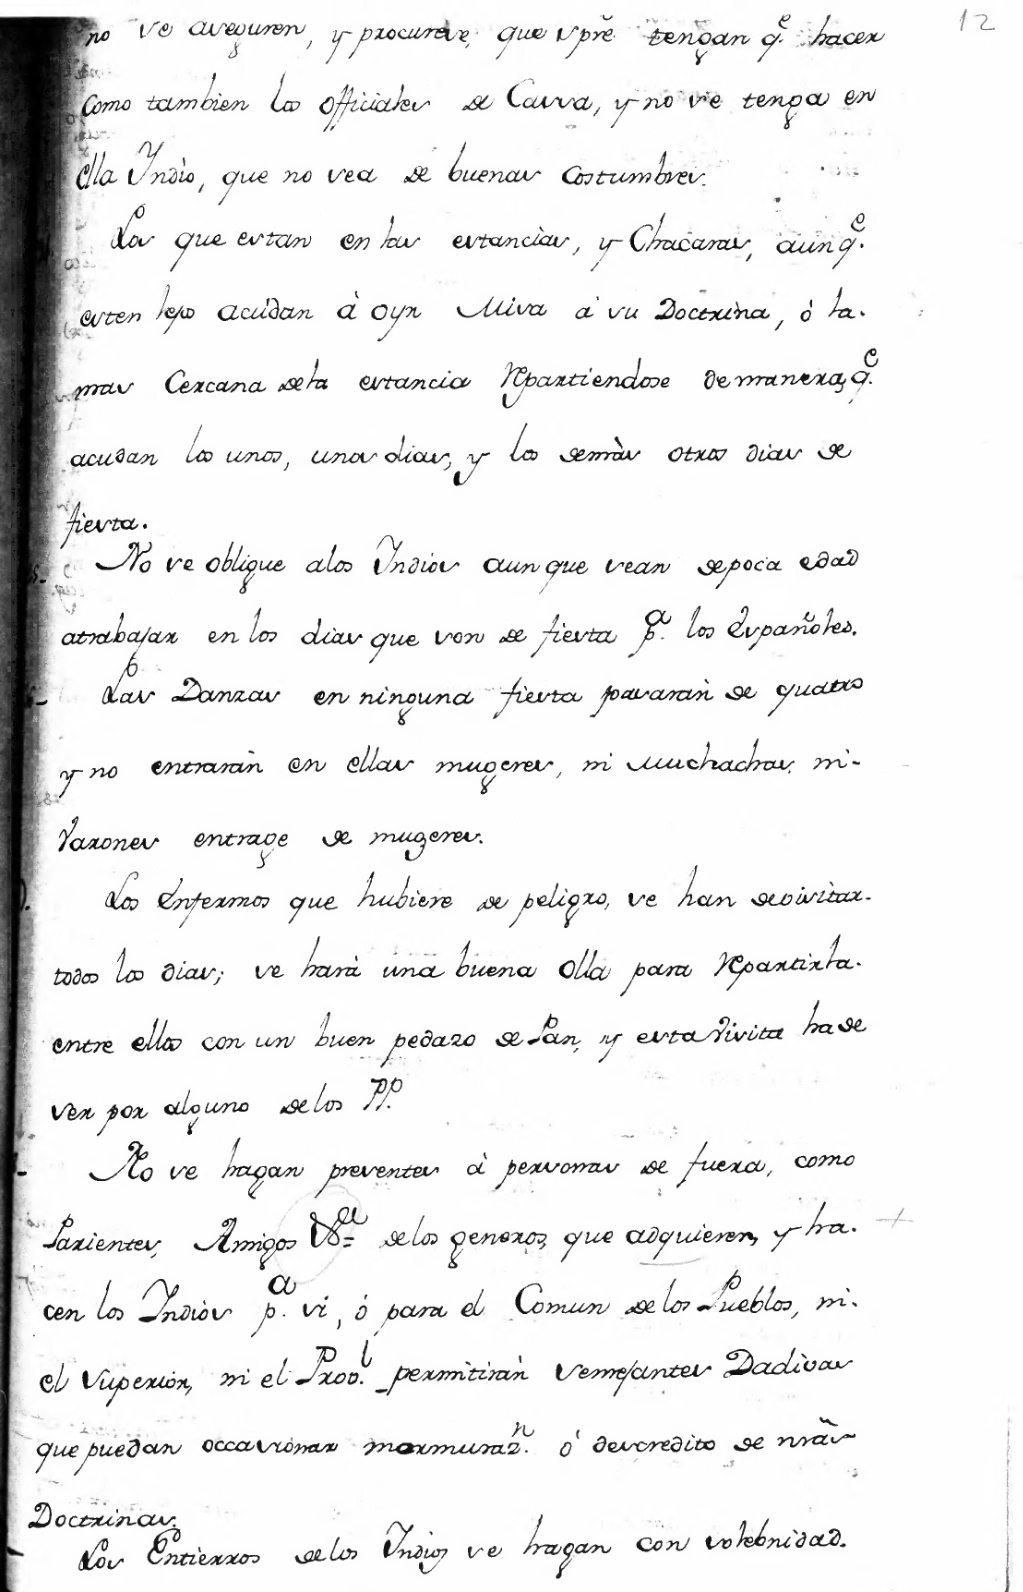 12
no se aseguren, y procurese, que sprẽ tengan q.e hacer
como tambien los officiales de Cassa, y no se tenga en
ella Indio, que no sea de buenas costumbres.
Los que estan en las estancias, y Chacaras, aunq.e
esten lexos acudan à oyr Missa à su Doctrina, ó la
mas Cercana dela estancia Repartiendose de manera, q.e
acudan los unos, unos dias, y los demàs otros dias de
fiesta.
No se obligue alos Indios aunque sean depoca edad
atrabajar en los dias que son de fiesta p.a los Españoles.
Las Danzas en ninguna fiesta pasaràn de quatro
y no entraràn en ellas mugeres, ni Muchachas, ni
Varones entrage de mugeres.
Los Enfermos que hubiere de peligro, se han devisitar
todos los dias; se harà una buena Olla para Repartirla
entre ellos con un buen pedazo de Pan, y esta Visita ha de
ser por alguno delos PP.
No se hagan presentes à personas de fuera, como
Parientes, Amigos &a delos generos, que adquieren, y ha-
cen los Indios p.a si, ò para el Comun delos Pueblos, ni
el Superior, ni el Prov.l permitiràn semejantes Dadivas
que puedan occasionar murmuraz.n ò descredito de nr̃as
Doctrinas.
Los Entierros delos Indios se hagan con solebnidad.